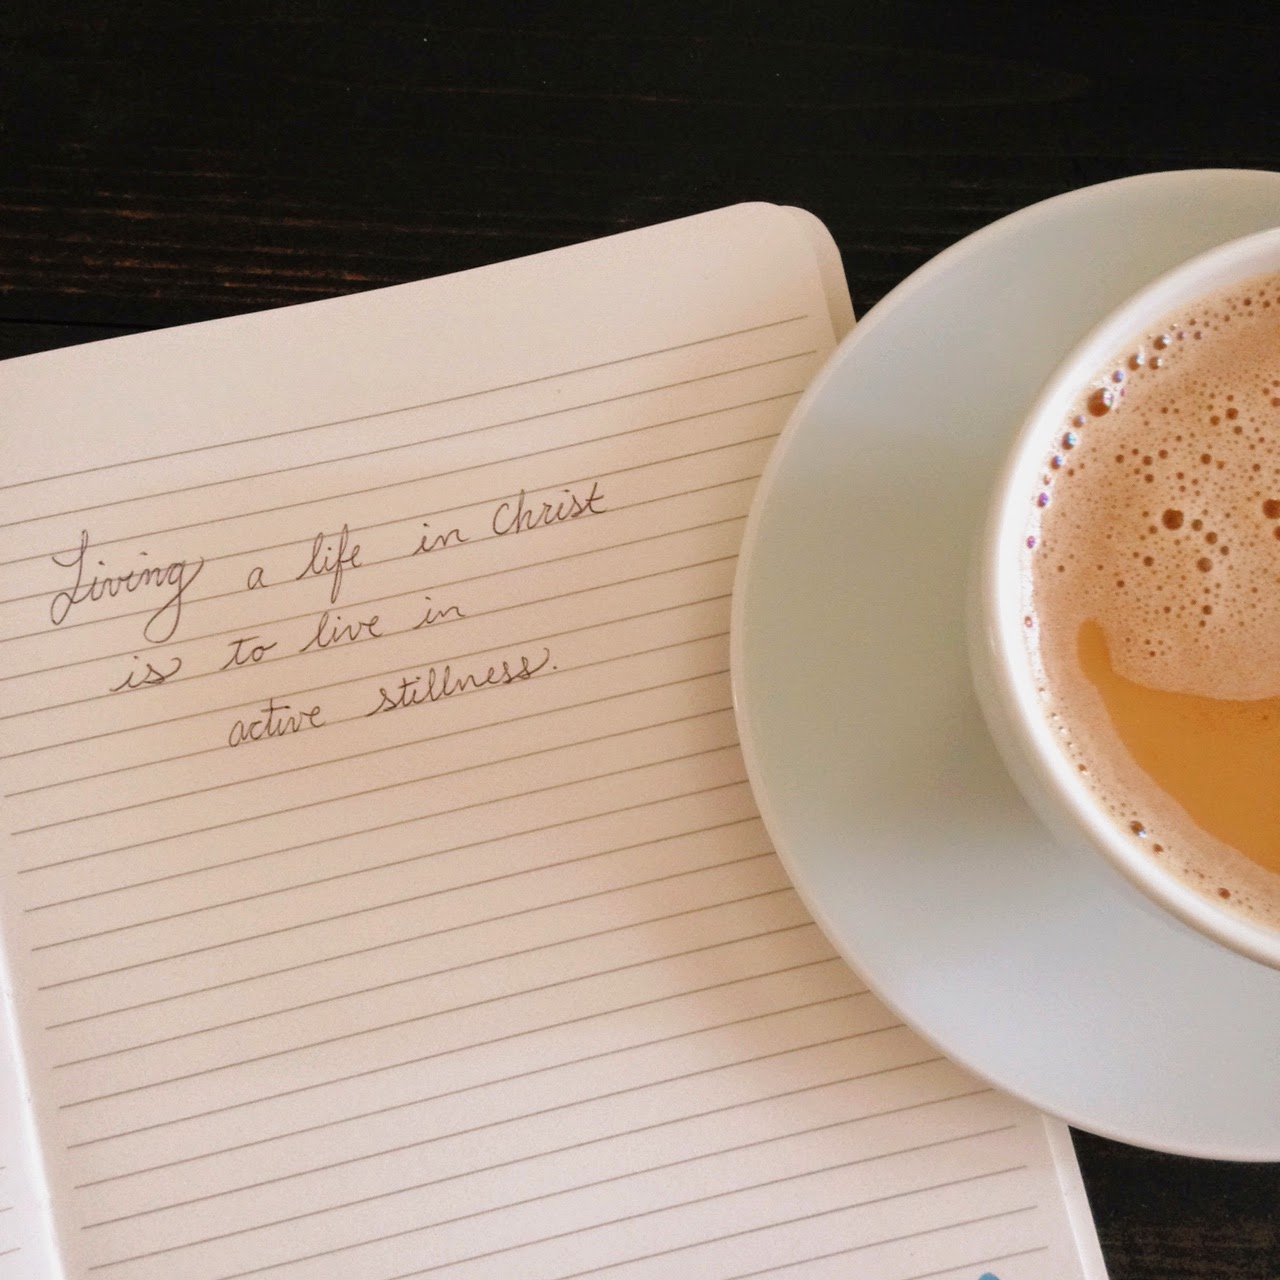 Living a life in Christ
is to live in
active stillness.